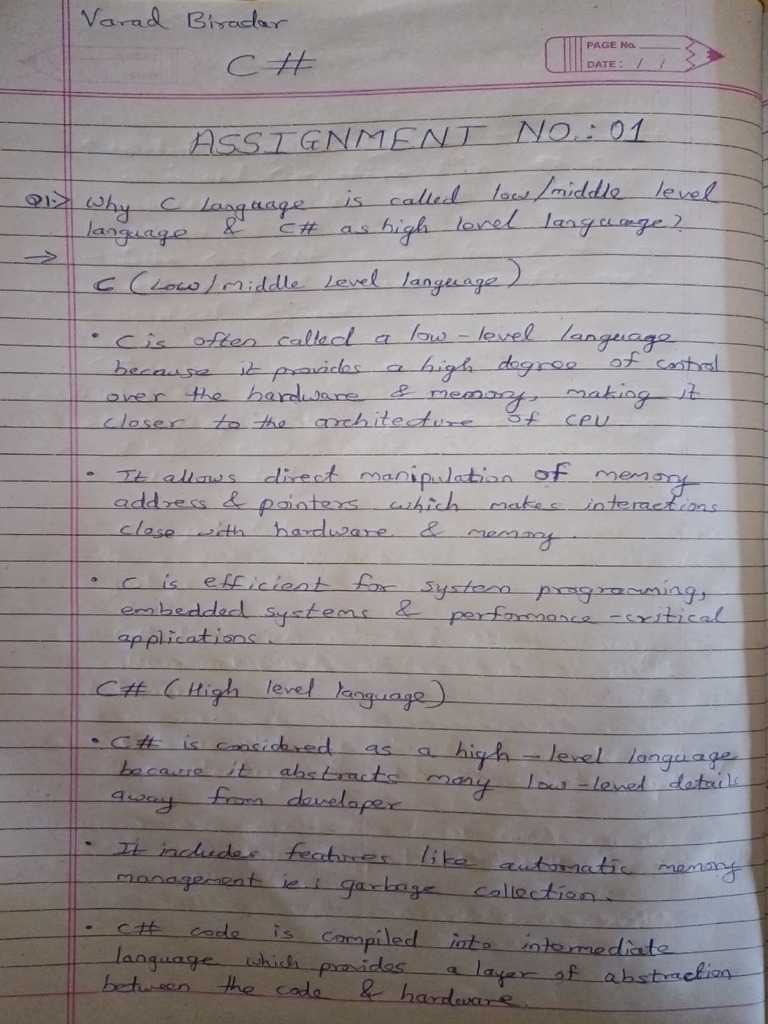 Varad Biradar
C#
PAGE No.
DATE: / /
ASSIGNMENT NO.: 01
Q1.> Why C language is called low/middle level
language & C# as high level language?
→
C (Low/middle Level language)
• C is often called a low-level language
because it provides a high degree of control
over the hardware & memory, making it
closer to the architecture of CPU
• It allows direct manipulation of memory
address & pointers which makes interactions
close with hardware & memory.
• C is efficient for system programming,
embedded systems & performance-critical
applications.
C# (High level language)
• C# is considered as a high-level language
because it abstracts many low-level details
away from developer
• It includes features like automatic memory
management ie.: garbage collection.
• C# code is compiled into intermediate
language which provides a layer of abstraction
between the code & hardware.